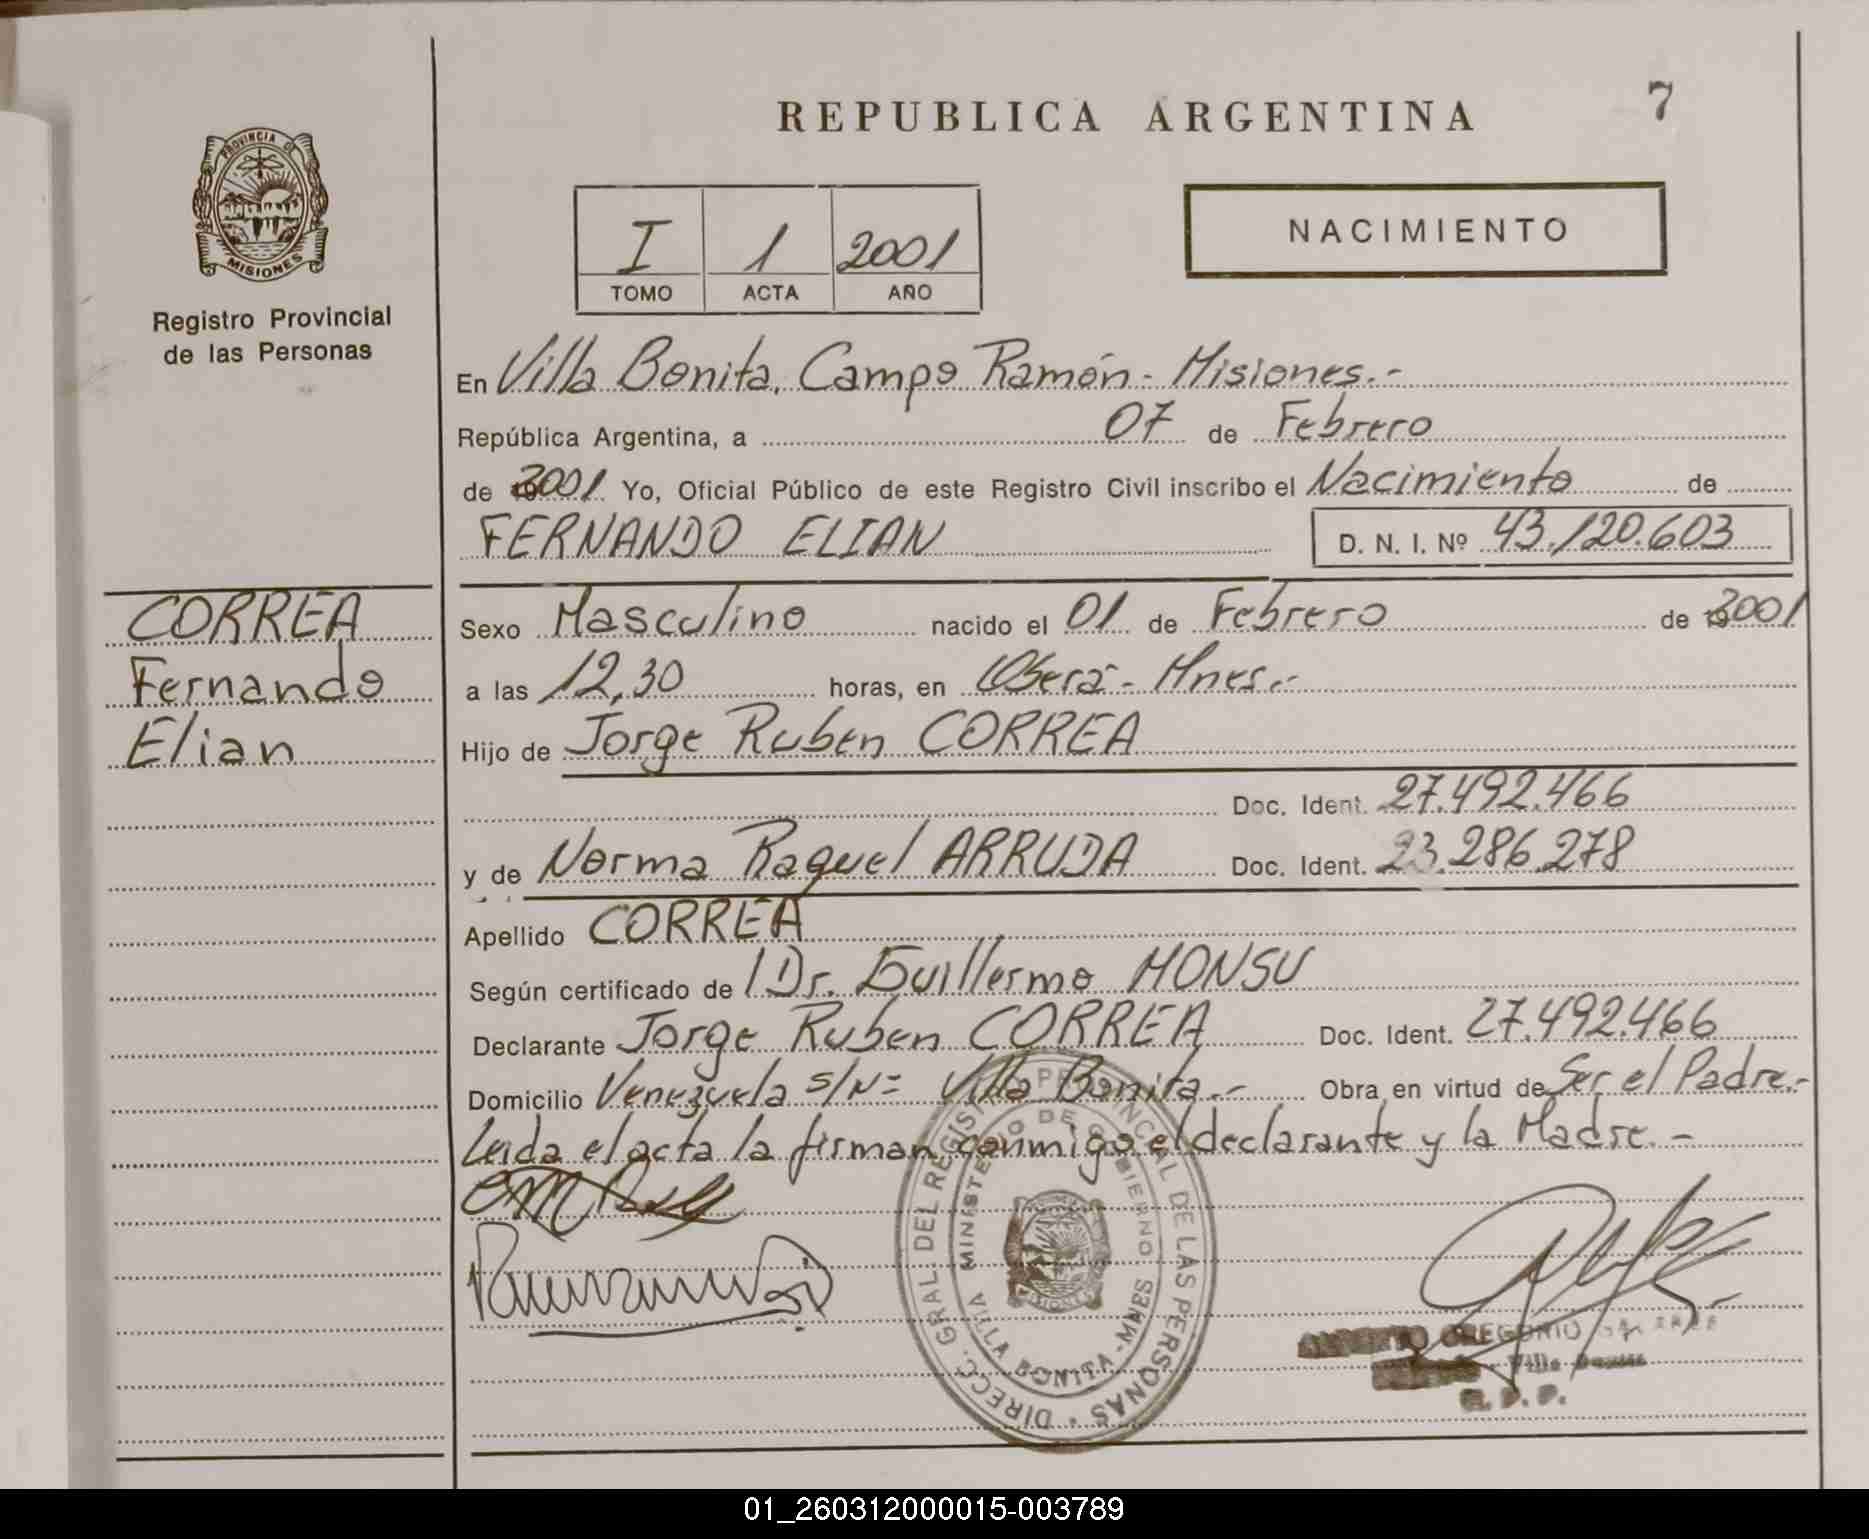 REPUBLICA ARGENTINA
7
PROVINCIA DE
MISIONES
Registro Provincial
de las Personas
I 1 2001
TOMO ACTA AÑO
NACIMIENTO
En Villa Bonita, Campo Ramón - Misiones.-
República Argentina, a 07 de Febrero
de 2001 Yo, Oficial Público de este Registro Civil inscribo el Nacimiento de
FERNANDO ELIAN D. N. I. Nº 43.120.603
CORREA
Fernando
Elian
Sexo Masculino nacido el 01 de Febrero de 2001
a las 12,30 horas, en Oberá - Mnes.-
Hijo de Jorge Ruben CORREA
Doc. Ident. 27.492.466
y de Norma Raquel ARRUDA Doc. Ident. 23.286.278
Apellido CORREA
Según certificado de l Dr. Guillermo MONSU
Declarante Jorge Ruben CORREA Doc. Ident. 27.492.466
Domicilio Venezuela s/Nº Villa Bonita.- Obra en virtud de Ser el Padre.-
Leida el acta la firman conmigo el declarante y la Madre.-
DIRECC. GRAL. DEL REGISTRO PROVINCIAL DE LAS PERSONAS
MINISTERIO DE GOBIERNO
VILLA BONITA - MNES
GREGORIO
Villa
01_260312000015-003789